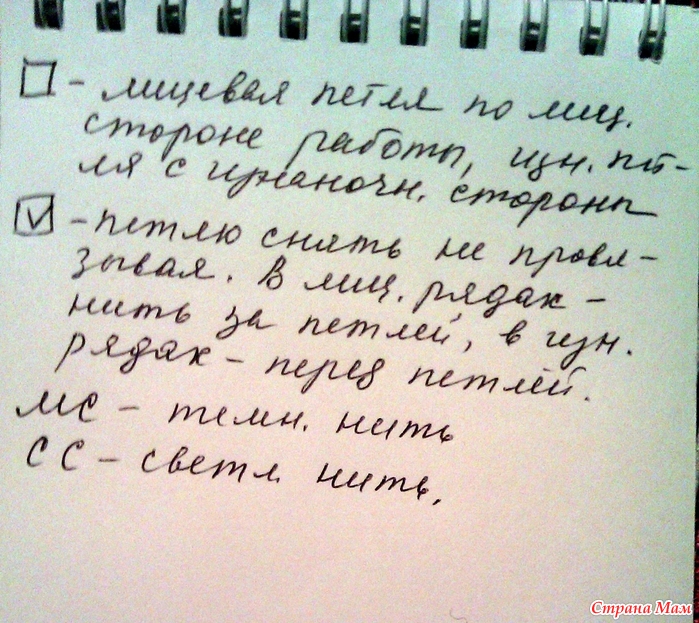 □ - лицевая петля по лиц.
стороне работы, изн. пет-
ля с изнаночн. стороны
☑ - петлю снять не провя-
зывая. В лиц. рядах -
нить за петлей, в изн.
рядах - перед петлей.
МС - темн. нить
СС - светл. нить.
Страна Мам